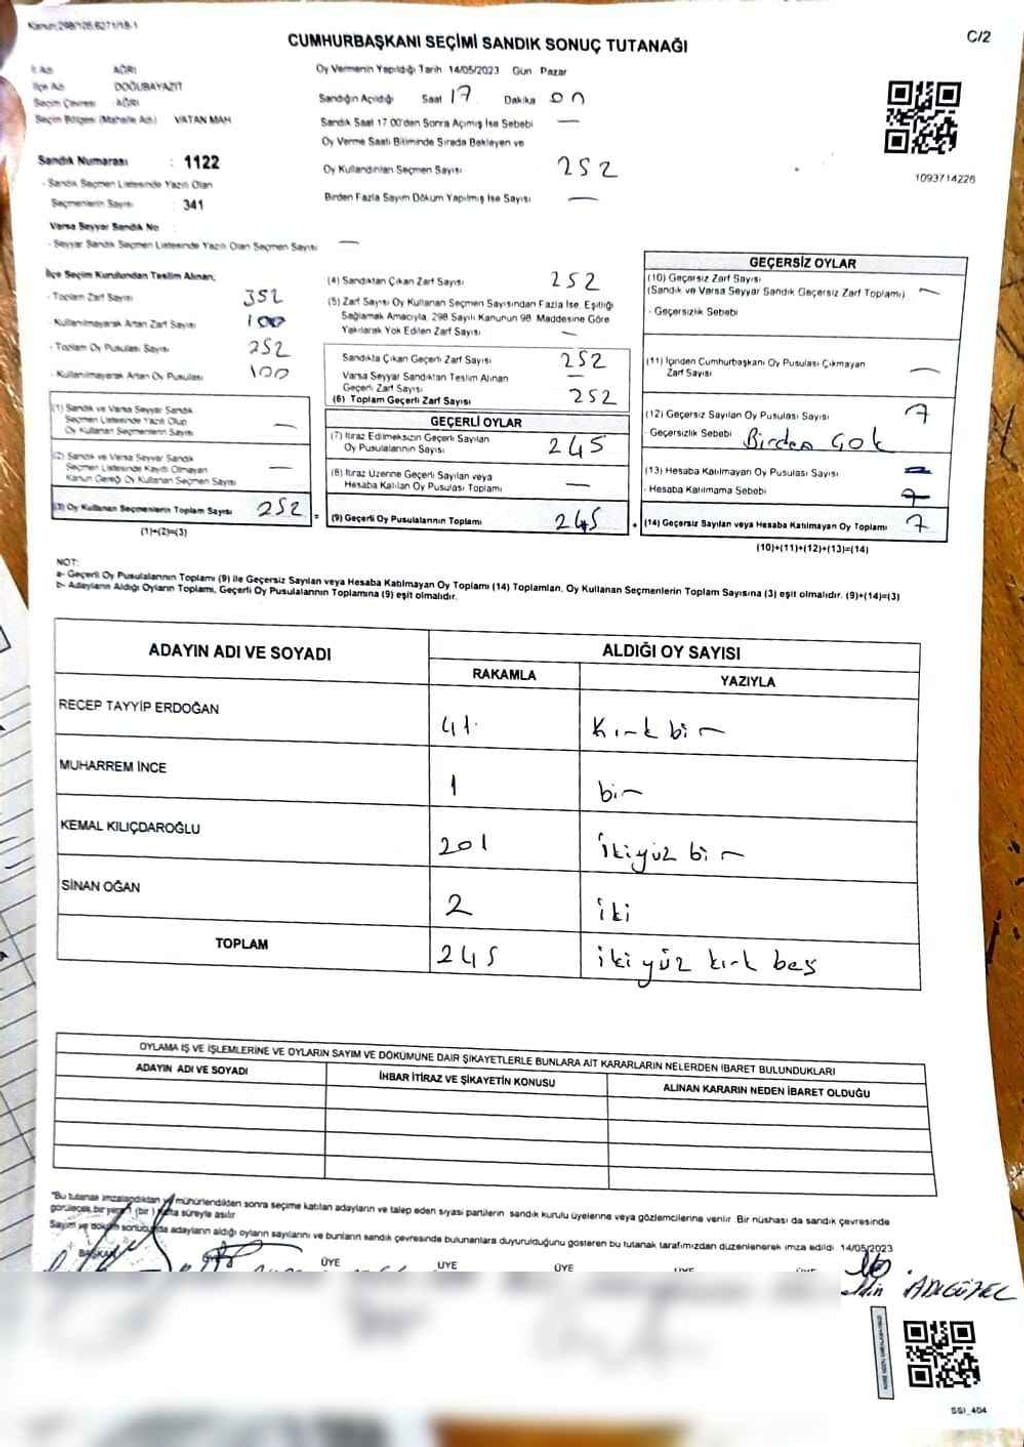 Kanun:298/105,6271/18-1
C/2
CUMHURBAŞKANI SEÇİMİ SANDIK SONUÇ TUTANAĞI
İl Adı AĞRI
İlçe Adı DOĞUBAYAZIT
Seçim Çevresi : AĞRI
Seçim Bölgesi (Mahalle Adı) VATAN MAH
Sandık Numarası : 1122
- Sandık Seçmen Listesinde Yazılı Olan
Seçmenlerin Sayısı : 341
Varsa Seyyar Sandık No
- Seyyar Sandık Seçmen Listesinde Yazılı Olan Seçmen Sayısı —
Oy Vermenin Yapıldığı Tarih 14/05/2023 Gün Pazar
Sandığın Açıldığı Saat 17 Dakika 00
Sandık Saat 17.00'den Sonra Açılmış İse Sebebi —
Oy Verme Saati Bitiminde Sırada Bekleyen ve
Oy Kullandırılan Seçmen Sayısı 252
Birden Fazla Sayım Döküm Yapılmış İse Sayısı —
1093714226
İlçe Seçim Kurulundan Teslim Alınan;
- Toplam Zarf Sayısı 352
- Kullanılmayarak Artan Zarf Sayısı 100
- Toplam Oy Pusulası Sayısı 252
- Kullanılmayarak Artan Oy Pusulası 100
(1) Sandık ve Varsa Seyyar Sandık
Seçmen Listesinde Yazılı Olup
Oy Kullanan Seçmenlerin Sayısı —
(2) Sandık ve Varsa Seyyar Sandık
Seçmen Listesinde Kayıtlı Olmayan
Kanun Gereği Oy Kullanan Seçmen Sayısı —
(3) Oy Kullanan Seçmenlerin Toplam Sayısı 252
(1)+(2)=(3)
(4) Sandıktan Çıkan Zarf Sayısı 252
(5) Zarf Sayısı Oy Kullanan Seçmen Sayısından Fazla İse, Eşitliği
Sağlamak Amacıyla, 298 Sayılı Kanunun 98. Maddesine Göre
Yakılarak Yok Edilen Zarf Sayısı —
Sandıkta Çıkan Geçerli Zarf Sayısı 252
Varsa Seyyar Sandıktan Teslim Alınan
Geçerli Zarf Sayısı —
(6) Toplam Geçerli Zarf Sayısı 252
GEÇERLİ OYLAR
(7) İtiraz Edilmeksizin Geçerli Sayılan
Oy Pusulalarının Sayısı 245
(8) İtiraz Üzerine Geçerli Sayılan veya
Hesaba Katılan Oy Pusulası Toplamı —
= (9) Geçerli Oy Pusulalarının Toplamı 245
GEÇERSİZ OYLAR
(10) Geçersiz Zarf Sayısı
(Sandık ve Varsa Seyyar Sandık Geçersiz Zarf Toplamı) —
- Geçersizlik Sebebi
(11) İçinden Cumhurbaşkanı Oy Pusulası Çıkmayan
Zarf Sayısı —
(12) Geçersiz Sayılan Oy Pusulası Sayısı 7
- Geçersizlik Sebebi Birden Çok
(13) Hesaba Katılmayan Oy Pusulası Sayısı
- Hesaba Katılmama Sebebi
+ (14) Geçersiz Sayılan veya Hesaba Katılmayan Oy Toplamı 7
(10)+(11)+(12)+(13)=(14)
NOT:
a- Geçerli Oy Pusulalarının Toplamı (9) ile Geçersiz Sayılan veya Hesaba Katılmayan Oy Toplamı (14) Toplamları, Oy Kullanan Seçmenlerin Toplam Sayısına (3) eşit olmalıdır. (9)+(14)=(3)
b- Adayların Aldığı Oyların Toplamı, Geçerli Oy Pusulalarının Toplamına (9) eşit olmalıdır.
ADAYIN ADI VE SOYADI ALDIĞI OY SAYISI
RAKAMLA YAZIYLA
RECEP TAYYİP ERDOĞAN 41 Kırk bir
MUHARREM İNCE 1 bir
KEMAL KILIÇDAROĞLU 201 İkiyüz bir
SİNAN OĞAN 2 iki
TOPLAM 245 iki yüz kırk beş
OYLAMA İŞ VE İŞLEMLERİNE VE OYLARIN SAYIM VE DÖKÜMÜNE DAİR ŞİKAYETLERLE BUNLARA AİT KARARLARIN NELERDEN İBARET BULUNDUKLARI
ADAYIN ADI VE SOYADI İHBAR İTİRAZ VE ŞİKAYETİN KONUSU ALINAN KARARIN NEDEN İBARET OLDUĞU
"Bu tutanak imzalandıktan ve mühürlendikten sonra seçime katılan adayların ve talep eden siyasi partilerin sandık kurulu üyelerine veya gözlemcilerine verilir. Bir nüshası da sandık çevresinde
görülecek bir yere 1 (bir) hafta süreyle asılır
Sayım ve döküm sonucunda adayların aldığı oyların sayılarını ve bunların sandık çevresinde bulunanlara duyurulduğunu gösteren bu tutanak tarafımızdan düzenlenerek imza edildi. 14/05/2023
BAŞKAN ÜYE ÜYE ÜYE ÜYE ÜYE
ADIGÜZEL
SSI_404